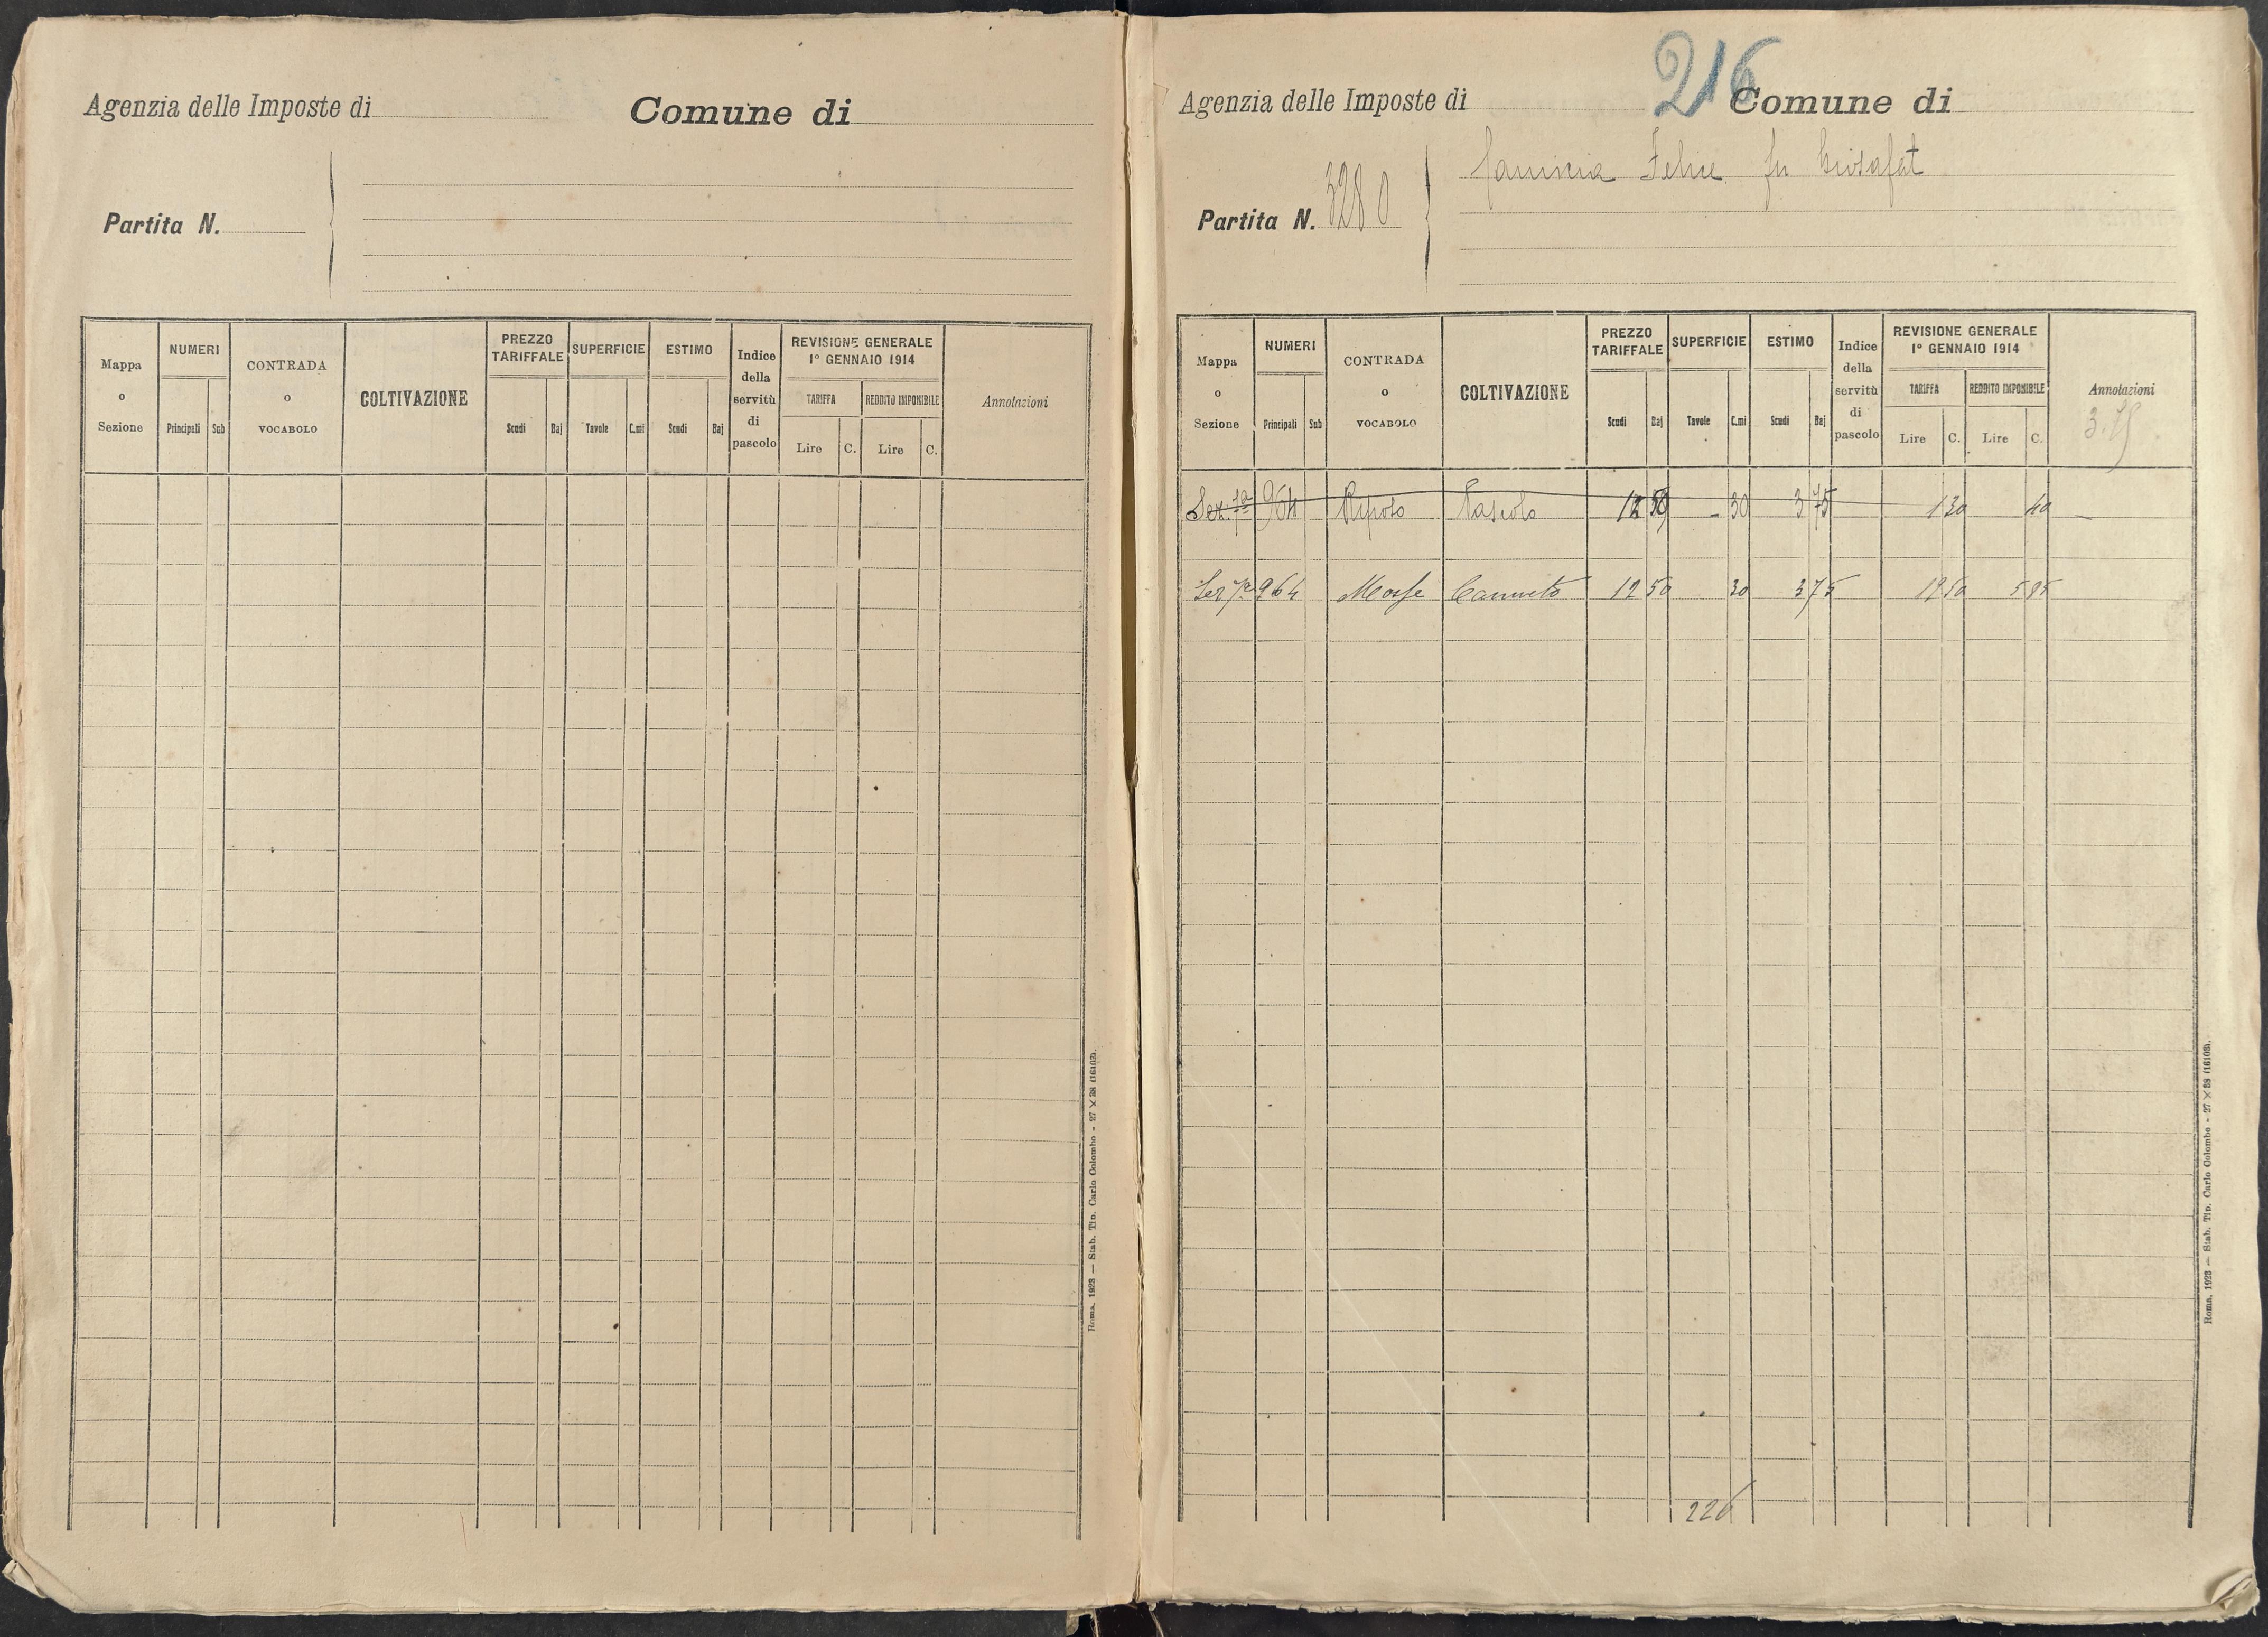 Agenzia delle Imposte di
Comune di
Partita N.
Mappa o Sezione
NUMERI
Principali
Sub
CONTRADA o VOCABOLO
COLTIVAZIONE
PREZZO TARIFFALE
Scudi
Baj
SUPERFICIE
Tavole
C.mi
ESTIMO
Scudi
Baj
Indice della servitù di pascolo
REVISIONE GENERALE
1° GENNAIO 1914
TARIFFA
REDDITO IMPONIBILE
Lire
C.
Lire
C.
Annotazioni
Roma, 1923 — Stab. Tip. Carlo Colombo - 27 × 38 (16103).
216
Agenzia delle Imposte di
Comune di
Felice fu Giosafat
Partita N. 3280
Mappa o Sezione
NUMERI
Principali
Sub
CONTRADA o VOCABOLO
COLTIVAZIONE
PREZZO TARIFFALE
Scudi
Baj
SUPERFICIE
Tavole
C.mi
ESTIMO
Scudi
Baj
Indice della servitù di pascolo
REVISIONE GENERALE
1° GENNAIO 1914
TARIFFA
REDDITO IMPONIBILE
Lire
C.
Lire
C.
Annotazioni
3.75
Sez. 1a 964 Pascolo 12 50 - 30 3 75 1 30 40 —
Sez 964 Canneto 12 50 30 3 75 19 50 5 85
226
Roma, 1923 — Stab. Tip. Carlo Colombo - 27 × 38 (16103).